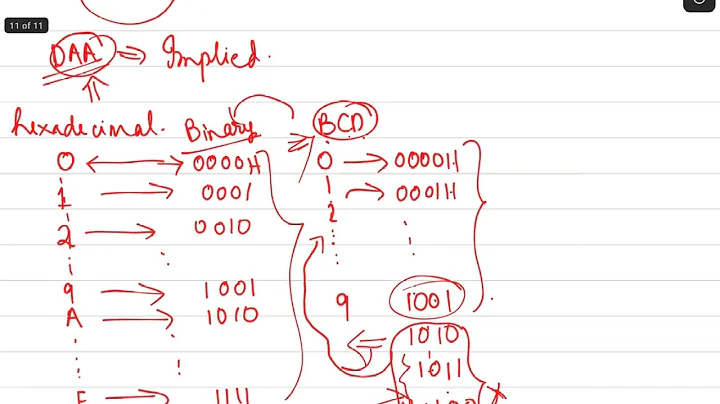 11 of 11
DAA ⇒ Implied.
hexadecimal. Binary ⇒ BCD
0 ↔ 0000H 0 → 0000H
1 → 0001 1 → 0001H
2 → 0010 2
9 → 1001 9 1001
A → 1010 1010
1011
F → 1111